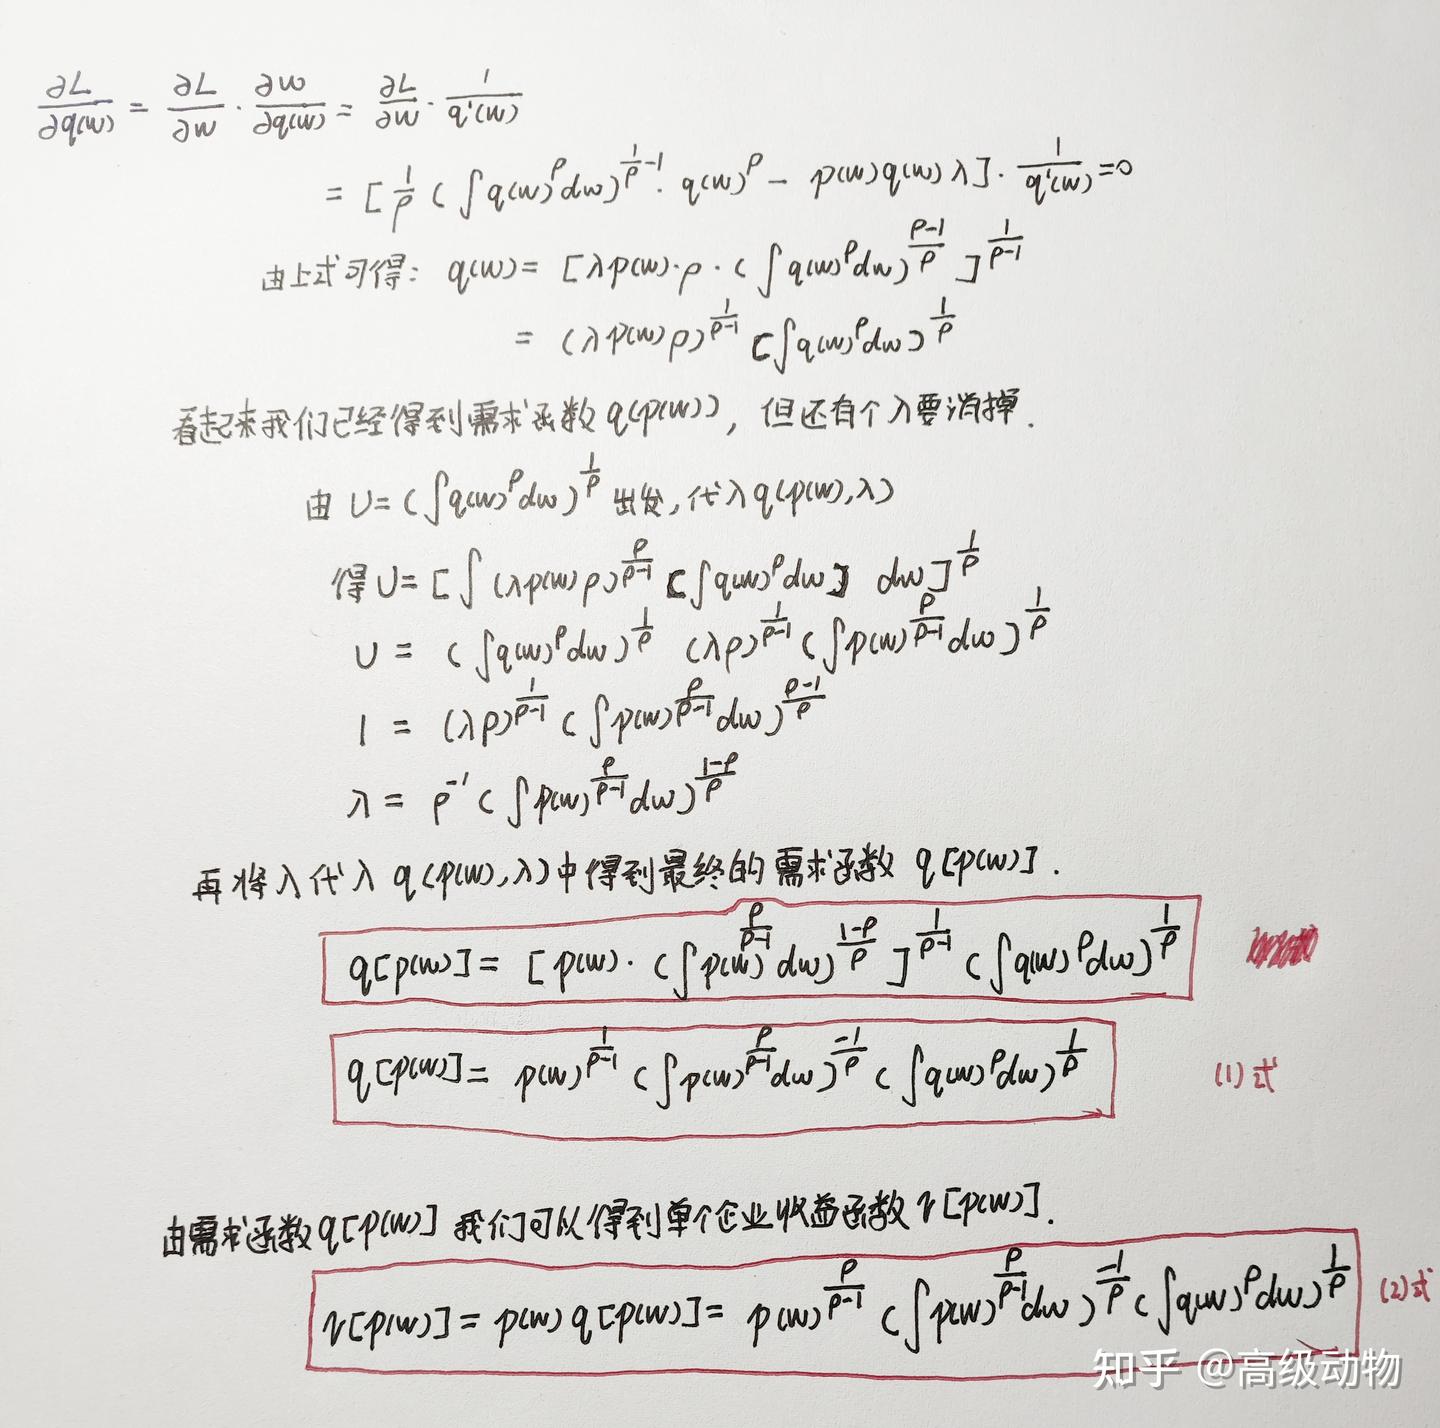 ∂L/∂q(w) = ∂L/∂w · ∂w/∂q(w) = ∂L/∂w · 1/q'(w)
= [ 1/ρ ( ∫q(w)^ρ dw )^(1/ρ -1) · q(w)^ρ - p(w)q(w)λ ] · 1/q'(w) =0
由上式可得: q(w)= [λp(w)·ρ·( ∫q(w)^ρ dw )^((ρ-1)/ρ) ]^(1/(ρ-1))
= (λp(w)ρ)^(1/(ρ-1)) [∫q(w)^ρ dw]^(1/ρ)
看起来我们已经得到需求函数 q(p(w)), 但还有个λ要消掉.
由 U=(∫q(w)^ρ dw)^(1/ρ) 出发, 代入q(p(w),λ)
得U=[∫(λp(w)ρ)^(ρ/(ρ-1)) [∫q(w)^ρ dw] dw]^(1/ρ)
U = (∫q(w)^ρ dw)^(1/ρ) (λρ)^(1/(ρ-1)) (∫p(w)^(ρ/(ρ-1)) dw)^(1/ρ)
1 = (λρ)^(1/(ρ-1)) (∫p(w)^(ρ/(ρ-1)) dw)^((ρ-1)/ρ)
λ = ρ^(-1) (∫p(w)^(ρ/(ρ-1)) dw)^((1-ρ)/ρ)
再将λ代入 q(p(w),λ)中得到最终的需求函数 q[p(w)].
q[p(w)] = [p(w)·(∫p(w)^(ρ/(ρ-1)) dw)^((1-ρ)/ρ) ]^(1/(ρ-1)) (∫q(w)^ρ dw)^(1/ρ)
q[p(w)] = p(w)^(1/(ρ-1)) (∫p(w)^(ρ/(ρ-1)) dw)^(-1/ρ) (∫q(w)^ρ dw)^(1/ρ) (1)式
由需求函数q[p(w)] 我们可以得到单个企业收益函数 r[p(w)].
r[p(w)] = p(w) q[p(w)] = p(w)^(ρ/(ρ-1)) (∫p(w)^(ρ/(ρ-1)) dw)^(-1/ρ) (∫q(w)^ρ dw)^(1/ρ) (2)式
知乎 @高级动物